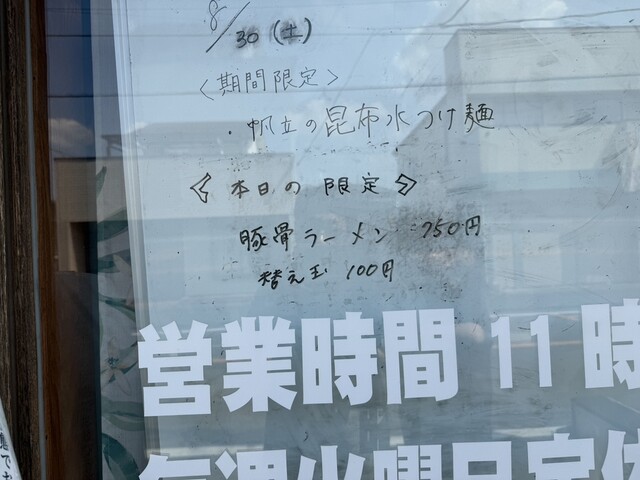 8/30(土)
<期間限定>
・帆立の昆布水つけ麺
《本日の限定》
豚骨ラーメン 750円
替え玉 100円
営業時間 11時
毎週火曜日定休